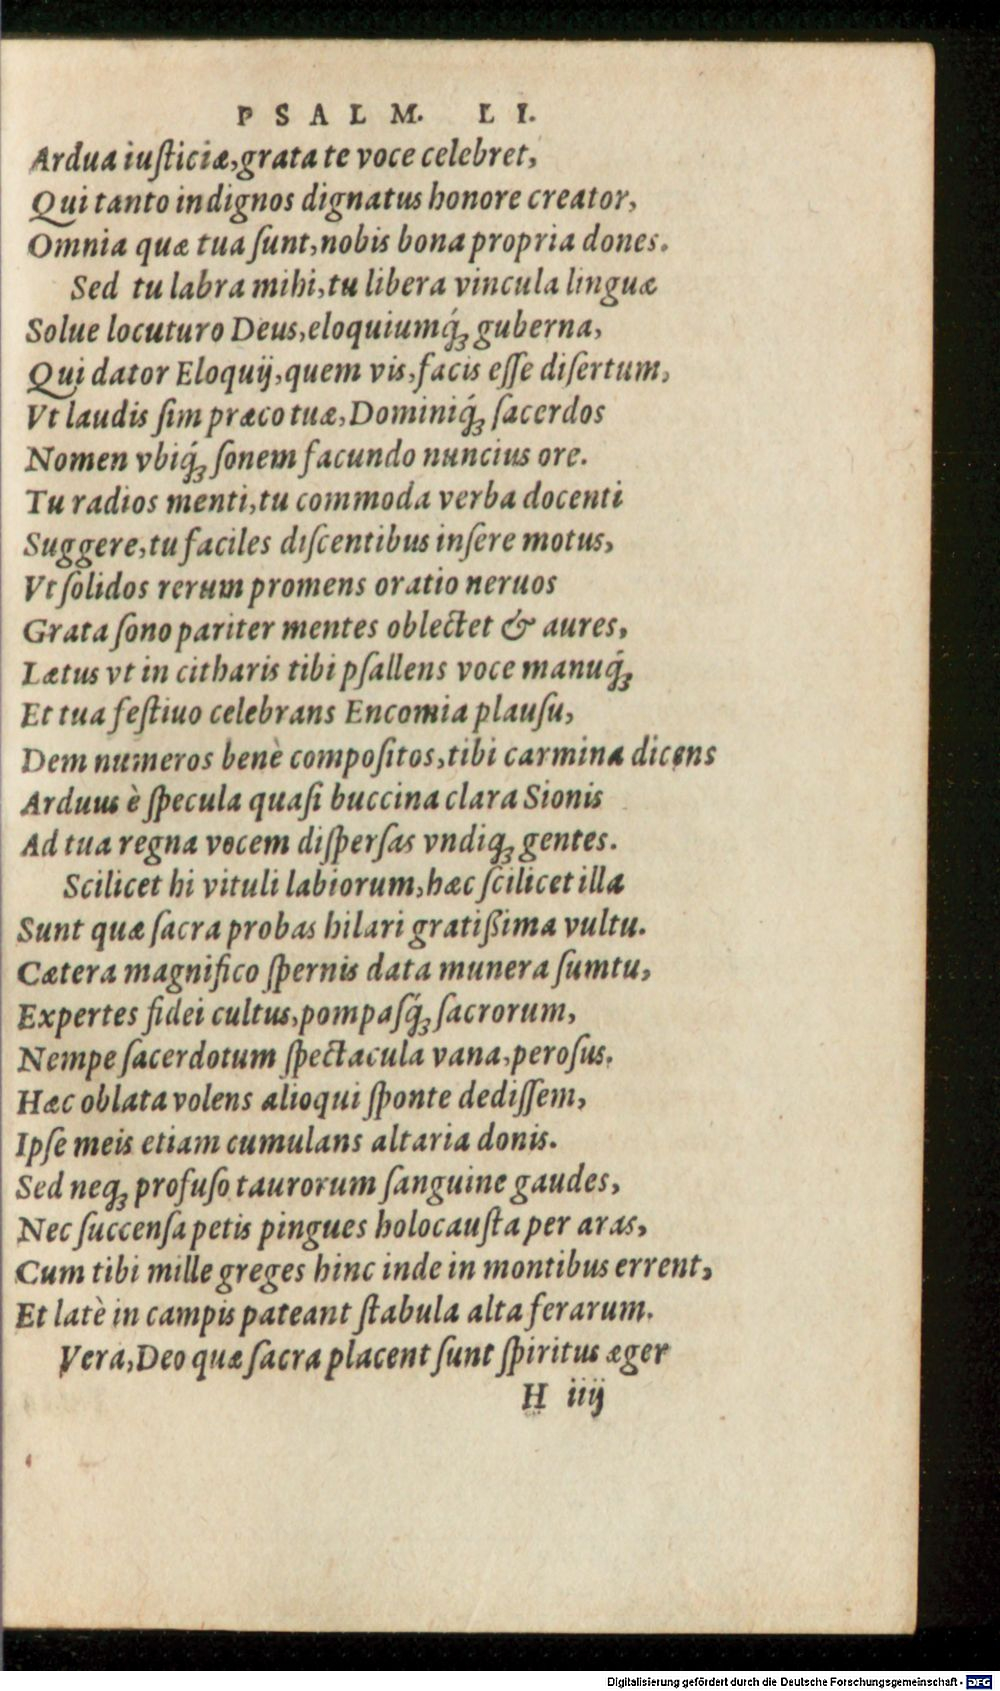 PSALM. LI.
Ardua iuſticiæ, grata te voce celebret,
Qui tanto indignos dignatus honore creator,
Omnia quæ tua ſunt, nobis bona propria dones.
Sed tu labra mihi, tu libera vincula linguæ
Solue locuturo Deus, eloquiumq́ꝫ guberna,
Qui dator Eloquij, quem vis, facis eſſe diſertum,
Vt laudis ſim præco tuæ, Dominiq́ꝫ ſacerdos
Nomen vbiq́ꝫ ſonem facundo nuncius ore.
Tu radios menti, tu commoda verba docenti
Suggere, tu faciles diſcentibus inſere motus,
Vt ſolidos rerum promens oratio neruos
Grata ſono pariter mentes oblectet & aures,
Lætus vt in citharis tibi pſallens voce manuq́ꝫ
Et tua feſtiuo celebrans Encomia plauſu,
Dem numeros benè compoſitos, tibi carmina dicens
Arduus è ſpecula quaſi buccina clara Sionis
Ad tua regna vocem diſperſas vndiqꝫ gentes.
Scilicet hi vituli labiorum, hæc ſcilicet illa
Sunt quæ ſacra probas hilari gratißima vultu.
Cætera magnifico ſpernis data munera ſumtu,
Expertes fidei cultus, pompaſq́ꝫ ſacrorum,
Nempe ſacerdotum ſpectacula vana, peroſus.
Hæc oblata volens alioqui ſponte dediſſem,
Ipſe meis etiam cumulans altaria donis.
Sed neqꝫ profuſo taurorum ſanguine gaudes,
Nec ſuccenſa petis pingues holocauſta per aras,
Cum tibi mille greges hinc inde in montibus errent,
Et latè in campis pateant ſtabula alta ferarum.
Vera, Deo quæ ſacra placent ſunt ſpiritus æger
H iiij
Digitalisierung gefördert durch die Deutsche Forschungsgemeinschaft - DFG